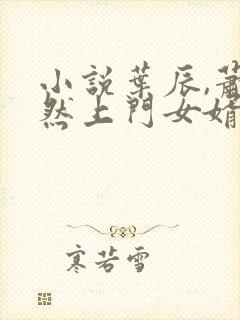 小説葉辰,蕭
然上門女婿
寒若雪